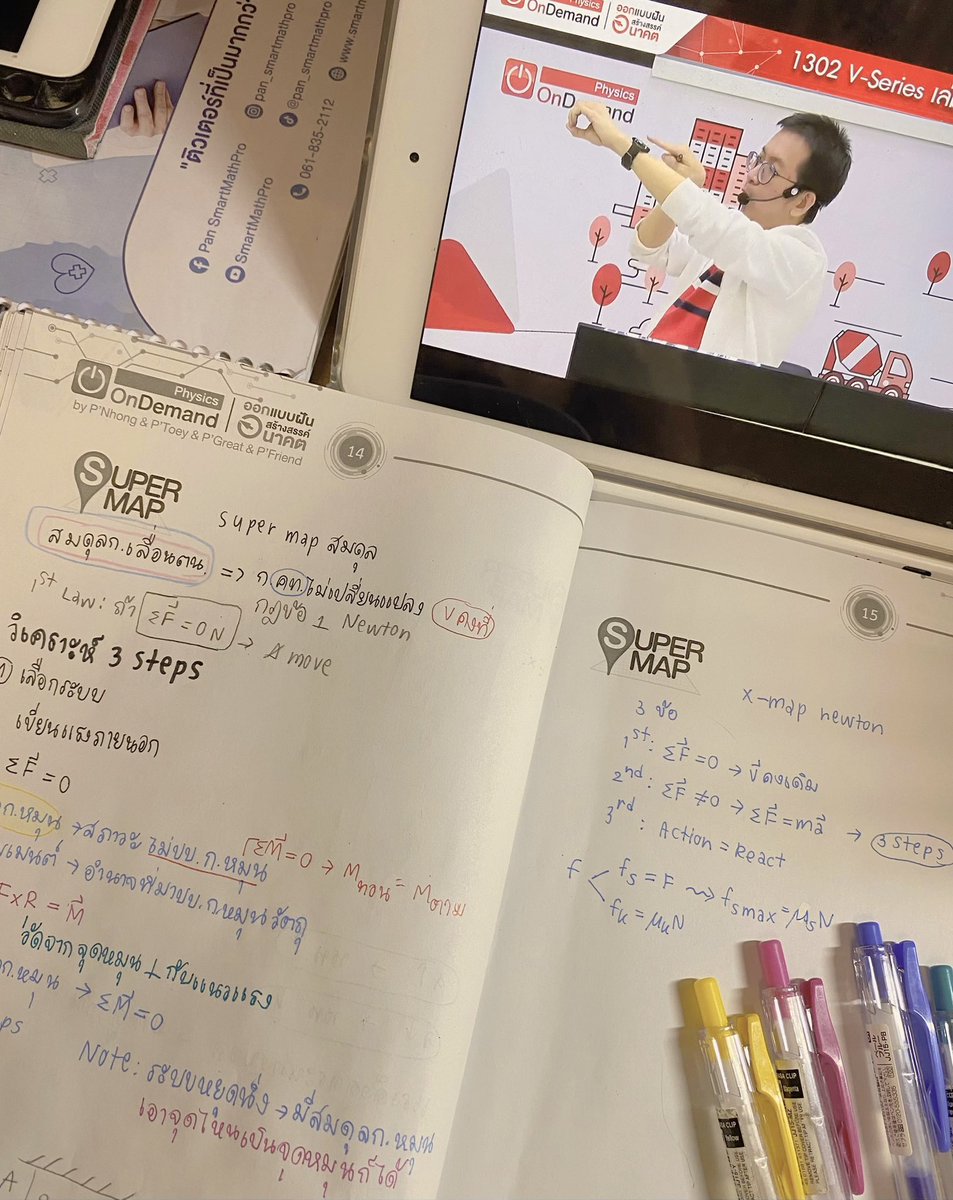 "ติวเตอร์ที่เป็นมากกว่
pan_smartmathpro
@pan_smartmathpro
www.smartm
Pan SmartMathPro
SmartMathPro
061-835-2112
Physics
OnDemand
ออกแบบฝัน
สร้างสรรค์
อนาคต
1302 V-Series เล่
Physics
OnDemand
Physics
OnDemand
by P'Nhong & P'Toey & P'Great & P'Friend
ออกแบบฝัน
สร้างสรรค์
อนาคต
14
SUPER
MAP
super map สมดุล
สมดุลก.เลื่อนตน. => ก คท.ไม่เปลี่ยนแปลง v⃗ คงที่
1st Law: ถ้า ΣF⃗ = 0 N กฎข้อ 1 Newton
วิเคราะห์ 3 steps
เลือกระบบ
เขียนแรงภายนอก
ΣF⃗ = 0
ก.หมุน → สภาวะ ไม่ปป.ก.หมุน ΣM⃗ = 0 → Mทวน = Mตาม
เมนต์ → อำนาจพี่มาปป.ก.หมุนวัตถุ
F×R = M⃗
วัดจากจุดหมุน ⊥ กับแนวแรง
ก.หมุน → ΣM⃗ = 0
Note: ระบบหยุดนิ่ง → มีสมดุลก.หมุน
เอาจุดไหนเป็นจุดหมุนก็ได้
A
15
SUPER
MAP
x-map newton
3 ข้อ
1st: ΣF⃗ = 0 → v⃗ คงเดิม
2nd: ΣF⃗ ≠ 0 → ΣF⃗ = ma⃗ → 3 steps
3rd: Action = React
f
fs = F ⇝ fsmax = μsN
fk = μkN
Yellow
JJ15-PB